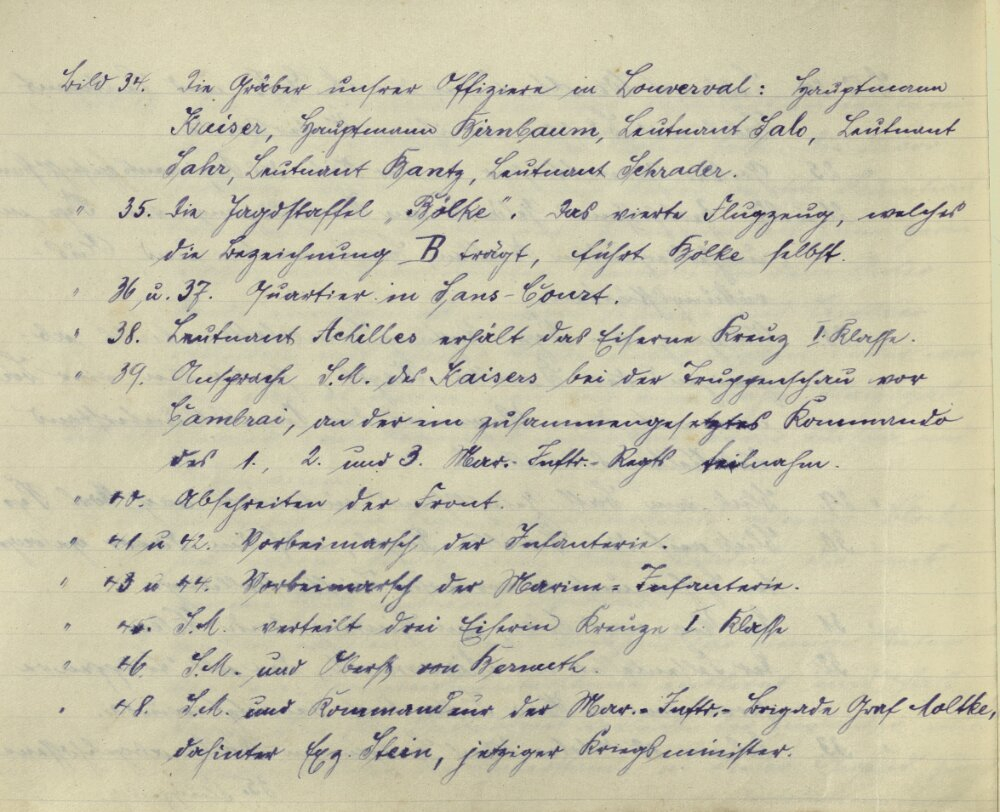 Bild 34. Die Gräber unsrer Offiziere in Louverval: Hauptmann
Kaiser, Hauptmann Birnbaum, Leutnant Salo, Leutnant
Sahr, Leutnant Bantz, Leutnant Schrader.
" 35. Die Jagdstaffel „Bölke“. Das vierte Flugzeug, welches
die Bezeichnung B trägt, führt Bölke selbst.
" 36 u. 37. Quartier in Sans-Court.
" 38. Leutnant Achilles erhält das Eiserne Kreuz I. Klasse.
" 39. Ansprache S.M. des Kaisers bei der Truppenschau vor
Cambrai, an der ein zusammengesetztes Kommando
des 1., 2. und 3. Mar.-Inftr.-Regts teilnahm.
" 40. Abschreiten der Front.
" 41 u 42. Vorbeimarsch der Infanterie.
" 43 u 44. Vorbeimarsch der Marine-Infanterie.
" 45. S.M. verteilt drei Eiserne Kreuze I. Klasse
" 46. S.M. und Oberst von
" 48. S.M. und Kommandeur der Mar.-Inftr.-Brigade Graf Moltke,
dahinter Exz. Stein, jetziger Kriegsminister.